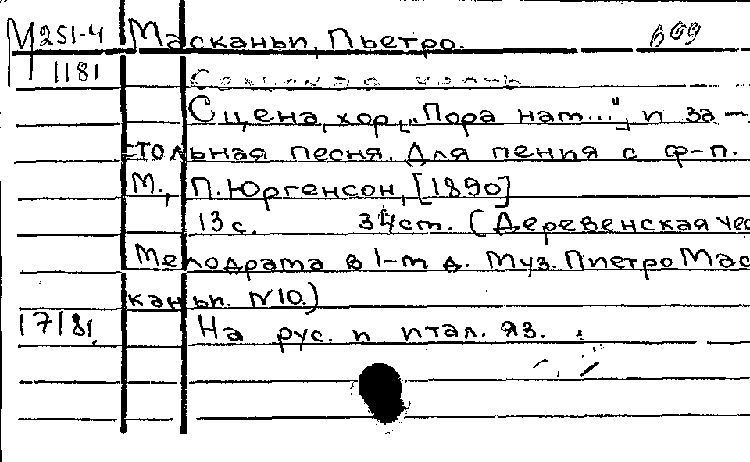 М 251-4 Масканьи, Пьетро. 609
1181
Сцена, хор ["Пора нам..."] и за-
стольная песня. Для пения с ф-п.
М., П. Юргенсон, [1890]
13 с. 34 cm. (Деревенская чес
Мелодрама в 1-m д. Муз. Пиетро Мас
каньи. N10.)
17181. На рус. и итал. яз.